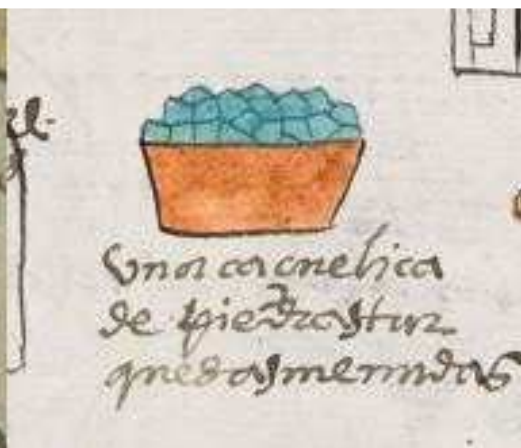 vna cacuelica
de piedras tur
quesas menudas